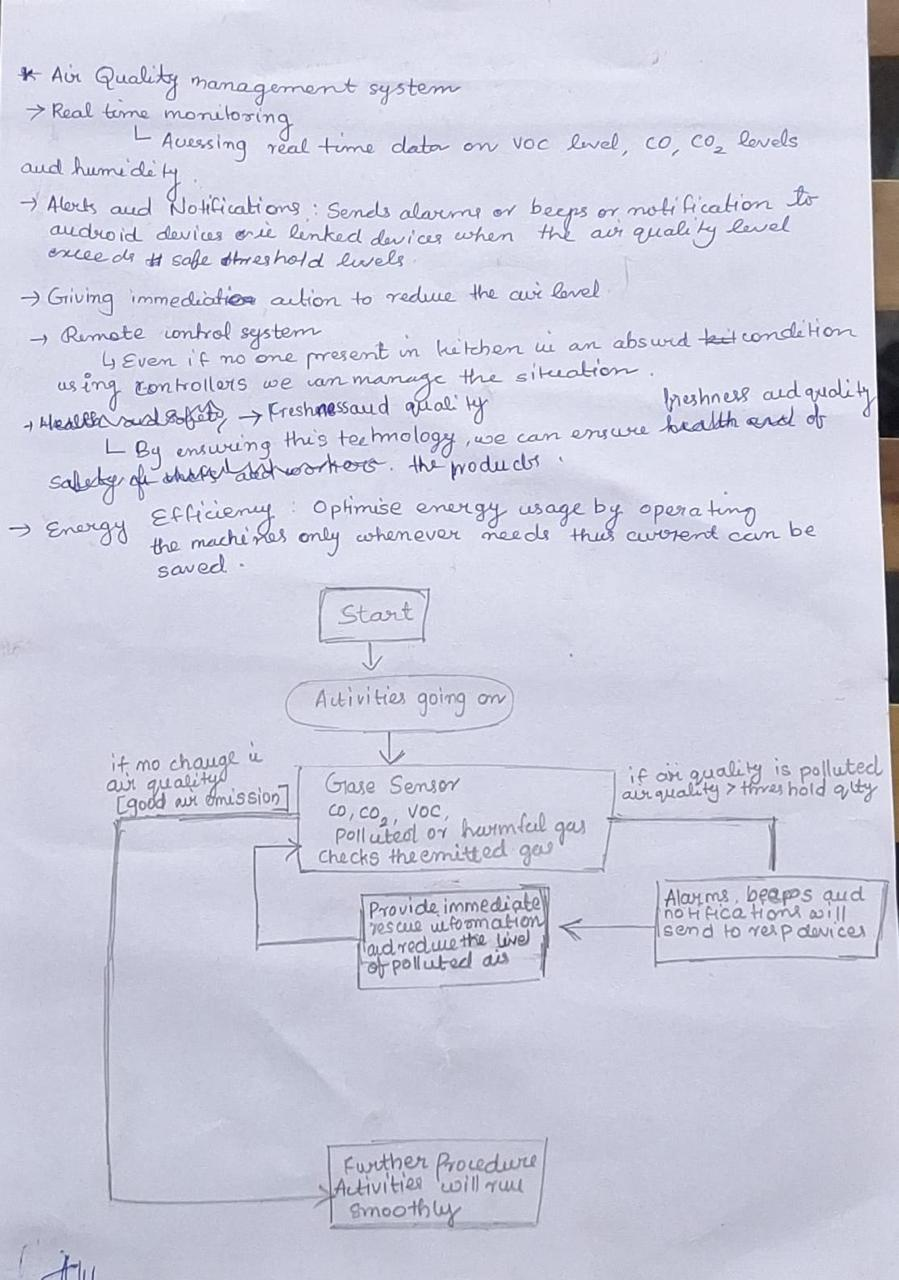 * Air Quality management system
→ Real time monitoring
└ Acessing real time data on VOC level, CO, CO₂ levels
and humidity.
→ Alerts and Notifications : Sends alarms or beeps or notification to
android devices or linked devices when the air quality level
exceeds safe threshold levels.
→ Giving immediate action to reduce the air level
→ Remote control system
↳ Even if no one present in kitchen in an absurd condition
using controllers we can manage the situation.
→ Freshness and quality
freshness and quality
└ By ensuring this technology, we can ensure of
the products.
→ Energy Efficiency : Optimise energy usage by operating
the machines only whenever needs thus current can be
saved.
Start
Activities going on
if no change in
air quality
[good air omission]
Gase Sensor
CO, CO₂, VOC,
Polluted or harmful gas
Checks the emitted gas
if air quality is polluted
air quality > threshold qlty
Alarms, beeps and
notifications will
send to resp devices
Provide immediate
rescue information
and reduce the level
of polluted air
Further Procedure
Activities will run
smoothly